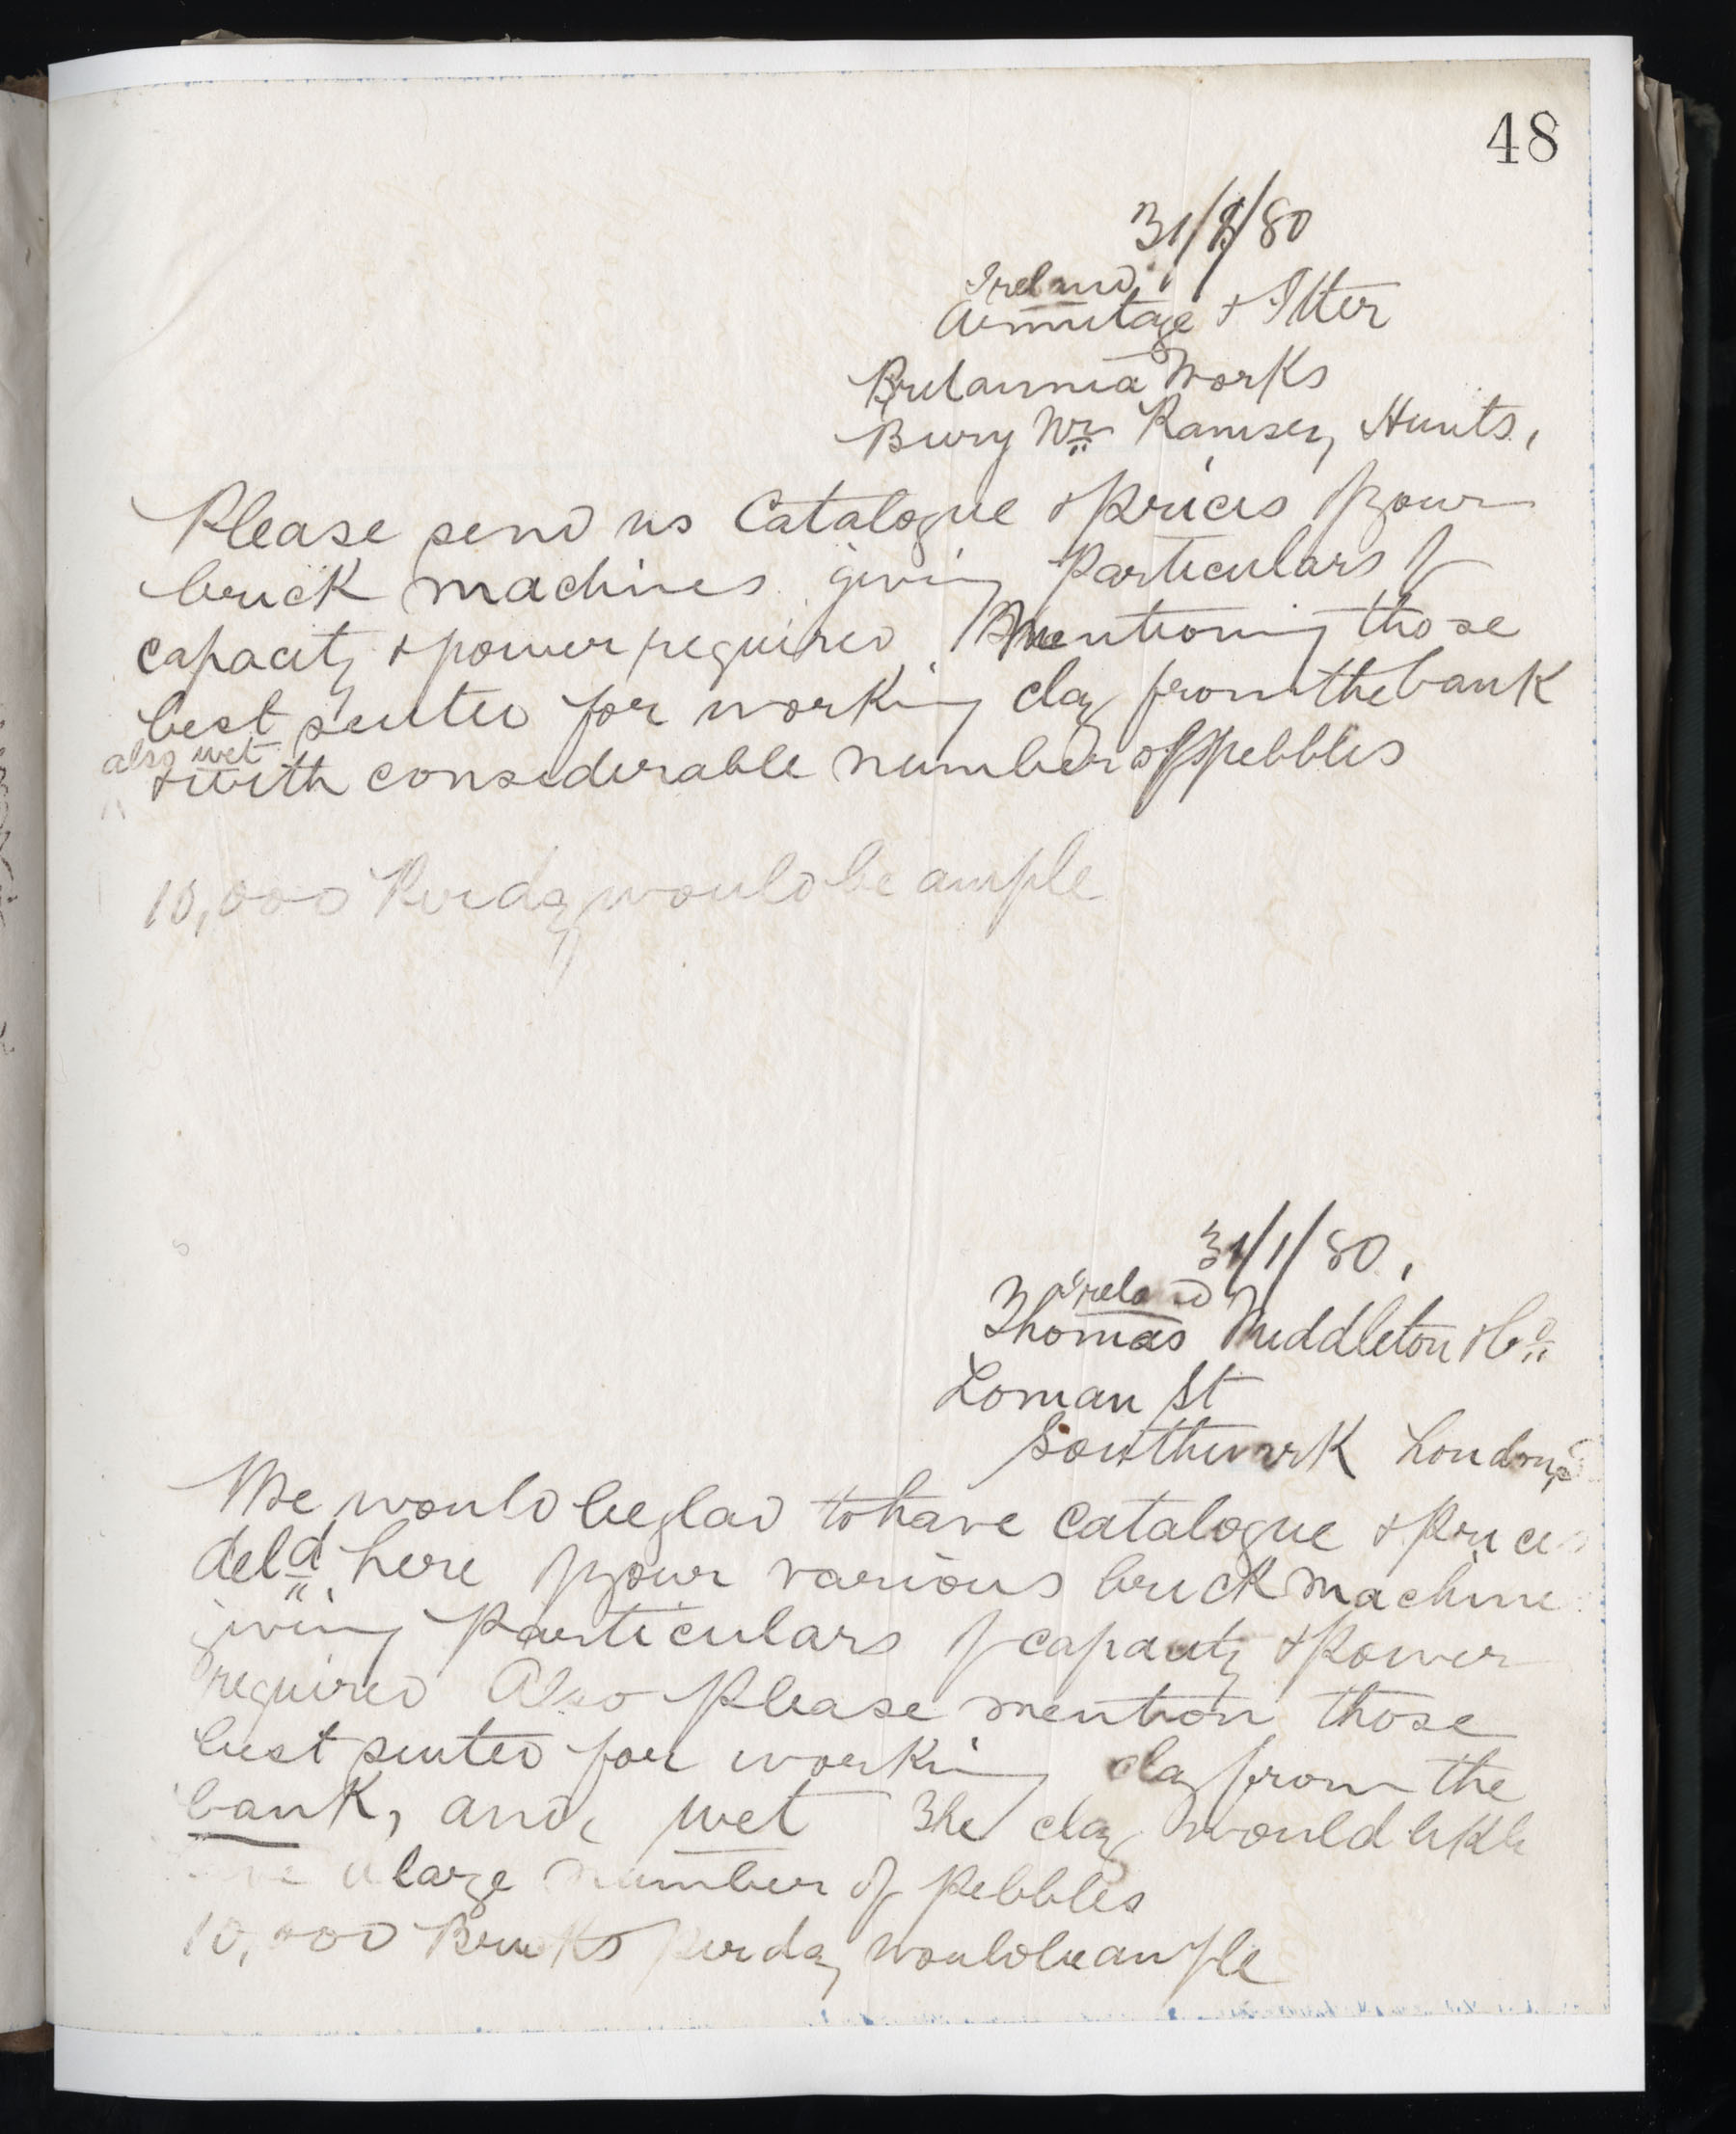 48
31/1/80
Ireland
Armitage & Itter
Britannia Works
Bury Nr Ramsey, Hunts,
Please send us Catalogue & prices of your
brick machines giving particulars of
capacity & power required, mentioning those
best suited for working clay from the bank
also wet
& with considerable number of pebbles
10,000 Per day would be ample
31/1/80,
Ireland
Thomas Middleton & Co
Loman St
Southwark London,
We would be glad to have catalogue & prices
deld here of your various brick machine
giving particulars of capacity & power
required Also please mention those
best suited for working clay from the
bank, and, wet The clay would likely
a large number of pebbles
10,000 Bricks per day would be ample